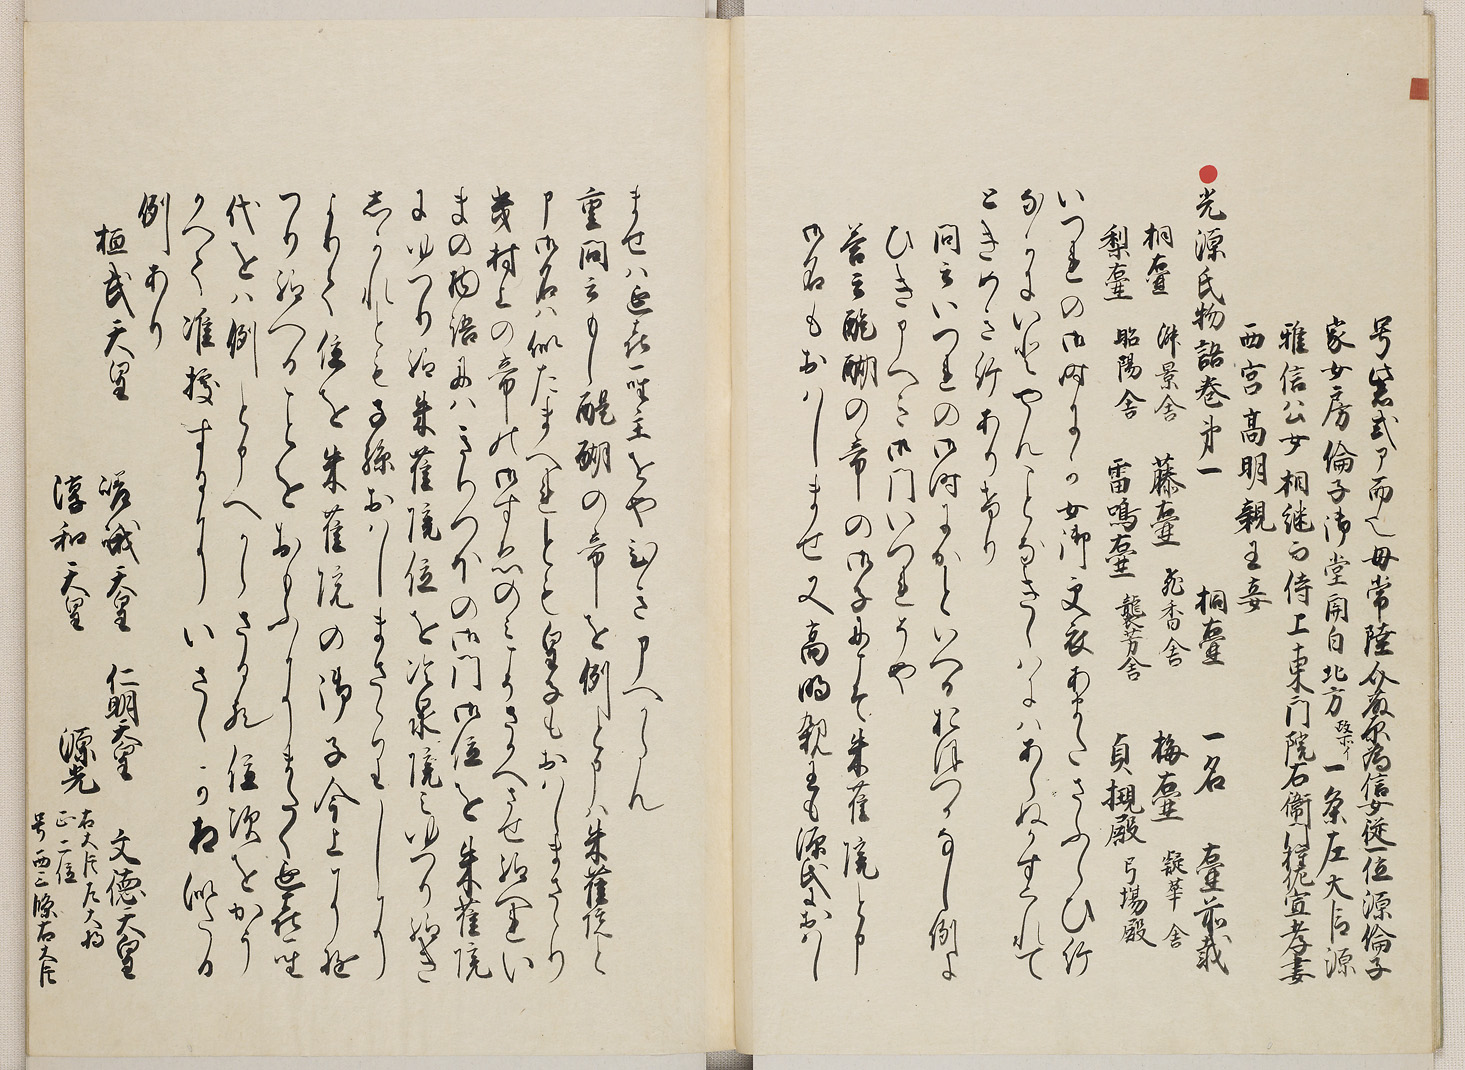 号紫式ア而已母常陸介藤原為信女従一位源倫子
家女房倫子御堂関白北方一条左大臣源
雅信公女相継而侍上東門院右衛門権佐宣孝妻
西宮高明親王妾
光源氏物語巻第一 桐壺 一名 壺前栽
桐壺 淑景舎 藤壺 飛香舎 梅壺 凝華舎
梨壺 昭陽舎 雷鳴壺 襲芳舎 貞観殿 弓場殿
いつれの御時にか女御更衣あまたさふらひ給
なかにいとやんことなきゝはにはあらぬかすくれて
ときめき給ありけり
問云いつれの御時にかといへるおほつかなし例に
ひき申へき御門いつれそや
答云醍醐の帝の御子にそ朱雀院と申
御名もおはしませ又高明親王も源氏におはし
ませは延喜聖主をや ひき申へからん
重問云もし醍醐の帝を例と申は朱雀院と
申御名は似たまへれとも皇子もおはしまさゝり
き村上の帝の御すゑのみこそさかへさせ給へれい
まの物語にはきりつほの御門御位を朱雀院
にゆつり給朱雀院位を冷泉院にゆつり給き
しかれとも子孫おはしまさゝりし
よりて位を朱雀院の御子今上にゆ
つり給へることをおもふにまさしく延喜聖
代をは例と申へからさる歟位次をかう
かへて准拠するにいさゝか相似たる
例あり
桓武天皇 嵯峨天皇 仁明天皇 文徳天皇
淳和天皇 源光 右大臣左大将
正二位
号西三條右大臣